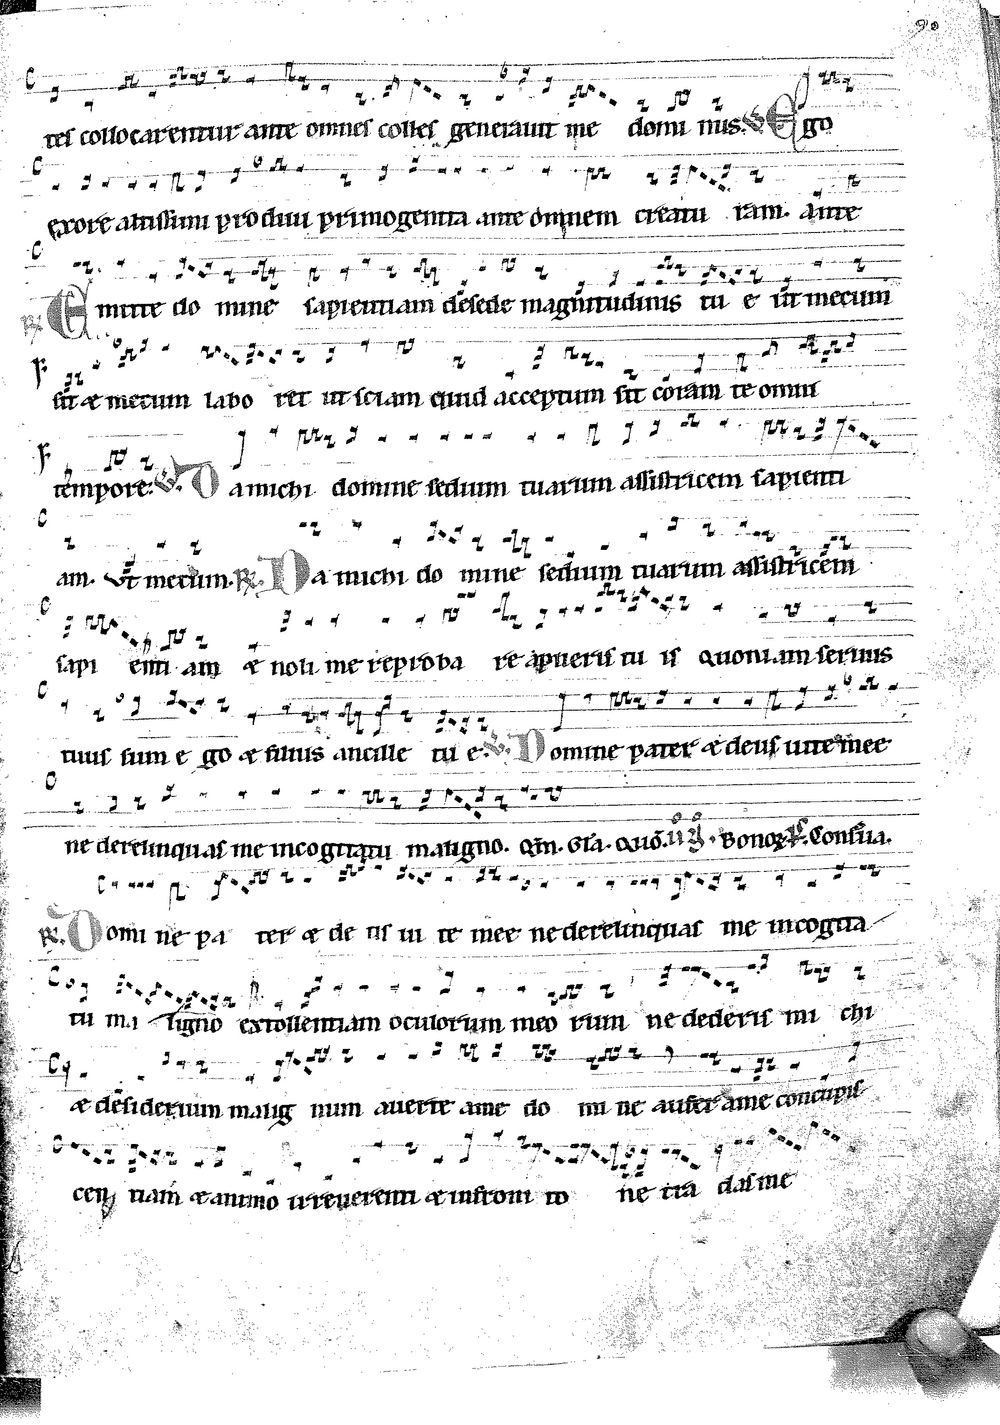 90
tes collocarentur ante omnes colles generauit me domi nus. V. Ego
exore altissimi prodiui primogenita ante omnem creatu ram. ante
R. Emitte do mine sapientiam de sede magnitudinis tu e ut mecum
sit &amp; mecum labo ret ut sciam quid acceptum sit coram te omni
tempore. V. Da michi domine sedium tuarum assistricem sapienti
am. Ut mecum. R. Da michi do mine sedium tuarum assistricem
sapi enti am &amp; noli me reproba re apueris tu is quoniam seruus
tuus sum e go &amp; filius ancille tu e. V. Domine pater &amp; deus uite mee
ne derelinquas me incogitatu maligno. Qm. Gla. Quo. Bonoꝝ. Consua.
R. Domi ne pa ter &amp; de us ui te mee ne derelinquas me incogita
tu ma ligno extollentiam oculorum meo rum ne dederis mi chi
&amp; desiderium malig num auerte ame do mi ne aufer ame concupis
cen tiam &amp; animo irreuerenti &amp; infroni to ne tra das me